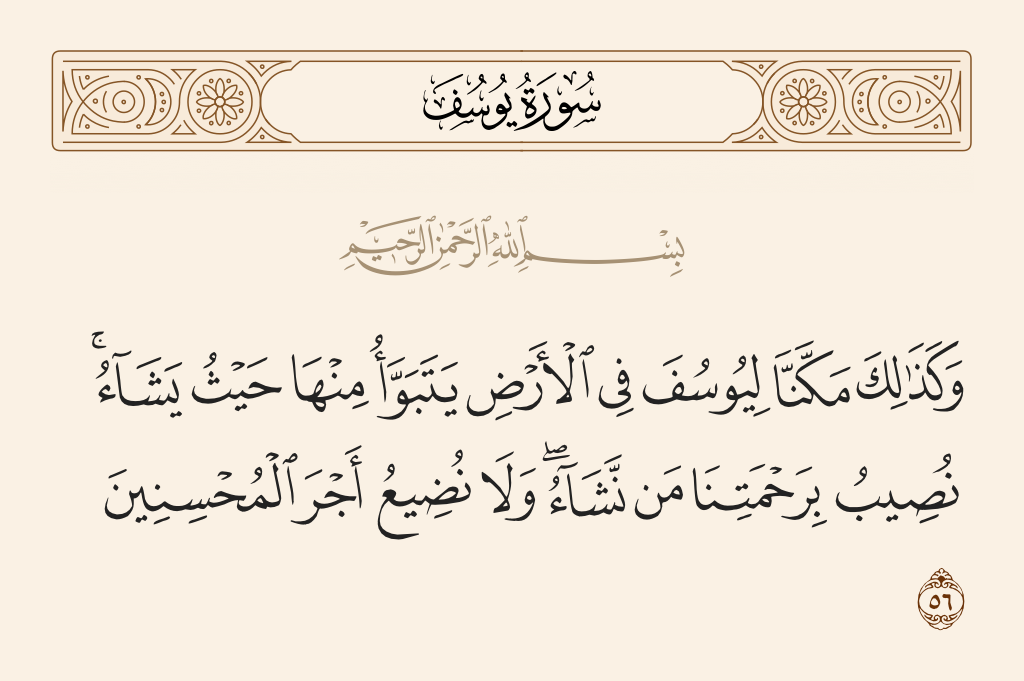 سُورَةُ يُوسُفَ
بِسْمِ ٱللَّهِ ٱلرَّحْمَٰنِ ٱلرَّحِيمِ
وَكَذَٰلِكَ مَكَّنَّا لِيُوسُفَ فِى ٱلْأَرْضِ يَتَبَوَّأُ مِنْهَا حَيْثُ يَشَآءُ ۚ
نُصِيبُ بِرَحْمَتِنَا مَن نَّشَآءُ ۖ وَلَا نُضِيعُ أَجْرَ ٱلْمُحْسِنِينَ
٥٦